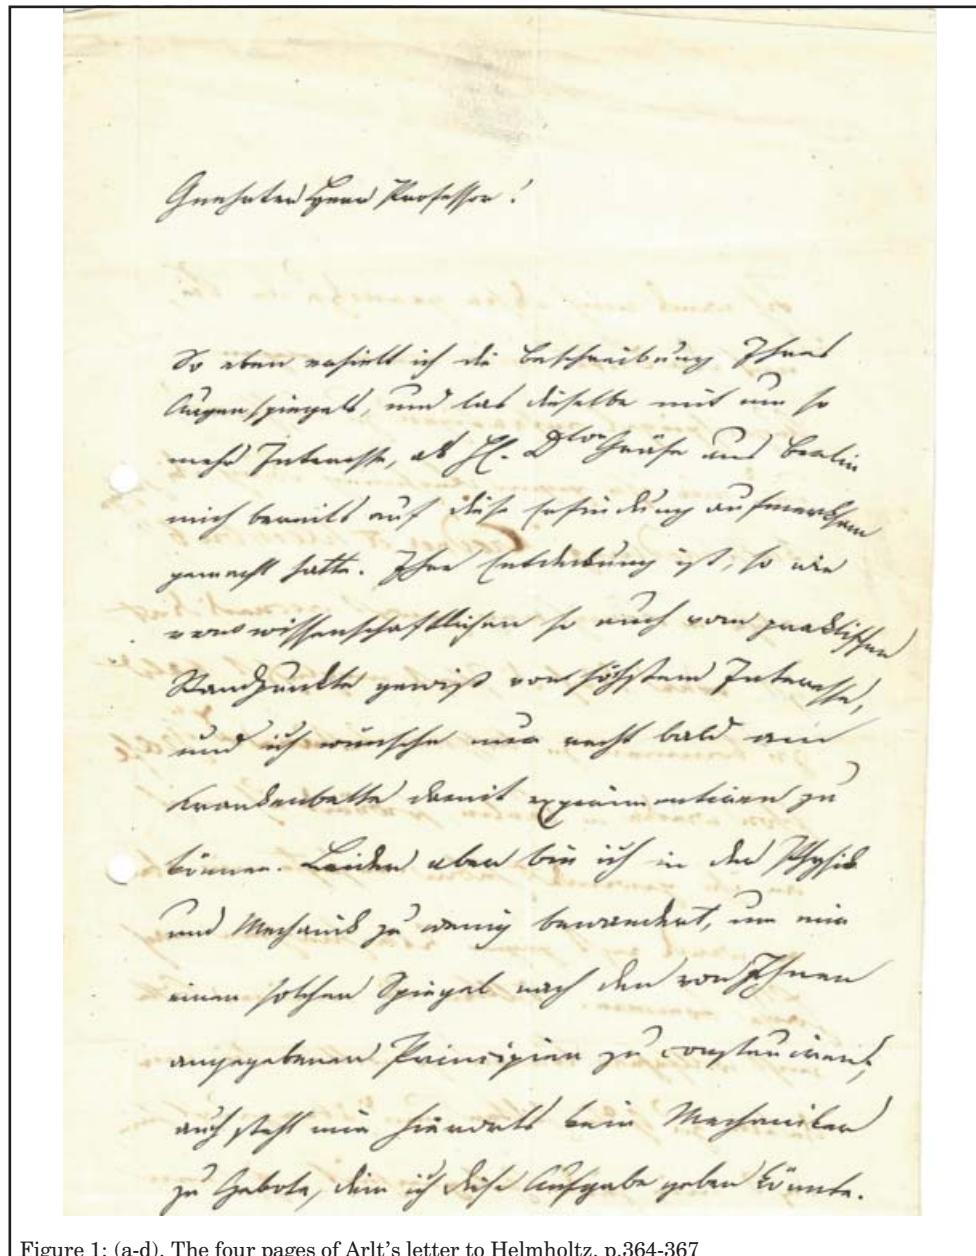 Geehrter Herr Professor!
So eben erhielt ich die Beschreibung Ihres
Augenspiegels, und las dieselbe mit um so
mehr Interesse, als H. Dtor Gräfe aus Berlin
mich bereits auf diese Erfindung aufmerksam
gemacht hatte. Ihre Entdeckung ist, so wie
vom wissenschaftlichen so auch vom praktischen
Standpunkte gewiß von höchstem Interesse,
und ich wünsche nur recht bald am
Krankenbette damit experimentiren zu
können. Leider aber bin ich in der Physik
und Mechanik zu wenig bewandert, um mir
einen solchen Spiegel nach den von Ihnen
angegebenen Principien zu construiren,
auch steht mir hierorts kein Mechaniker
zu Gebote, dem ich diese Aufgabe geben könnte.
Figure 1: (a-d). The four pages of Arlt's letter to Helmholtz. p.364-367